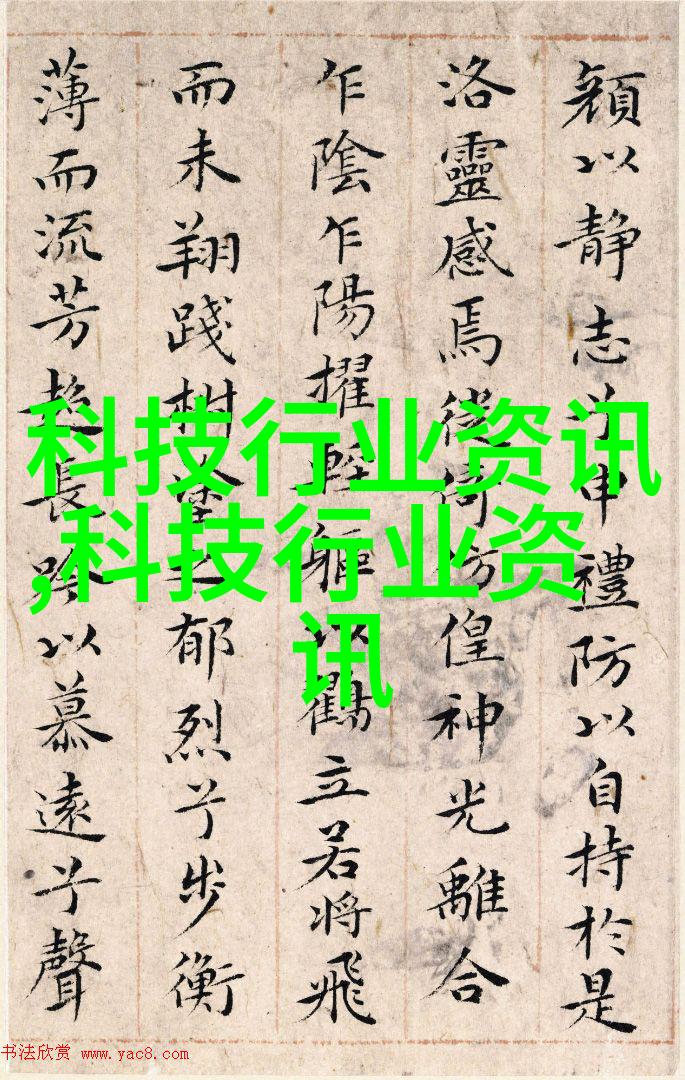 顏以靜志兮申禮防以自持於是
洛靈感焉徙倚彷偟神光離合
乍陰乍陽擢輕軀以鶴立若將飛
而未翔踐椒塗之郁烈兮步衡
薄而流芳超長吟以慕遠兮聲
科技行业资讯
,科技行业资
讯
书法欣赏 www.yac8.com